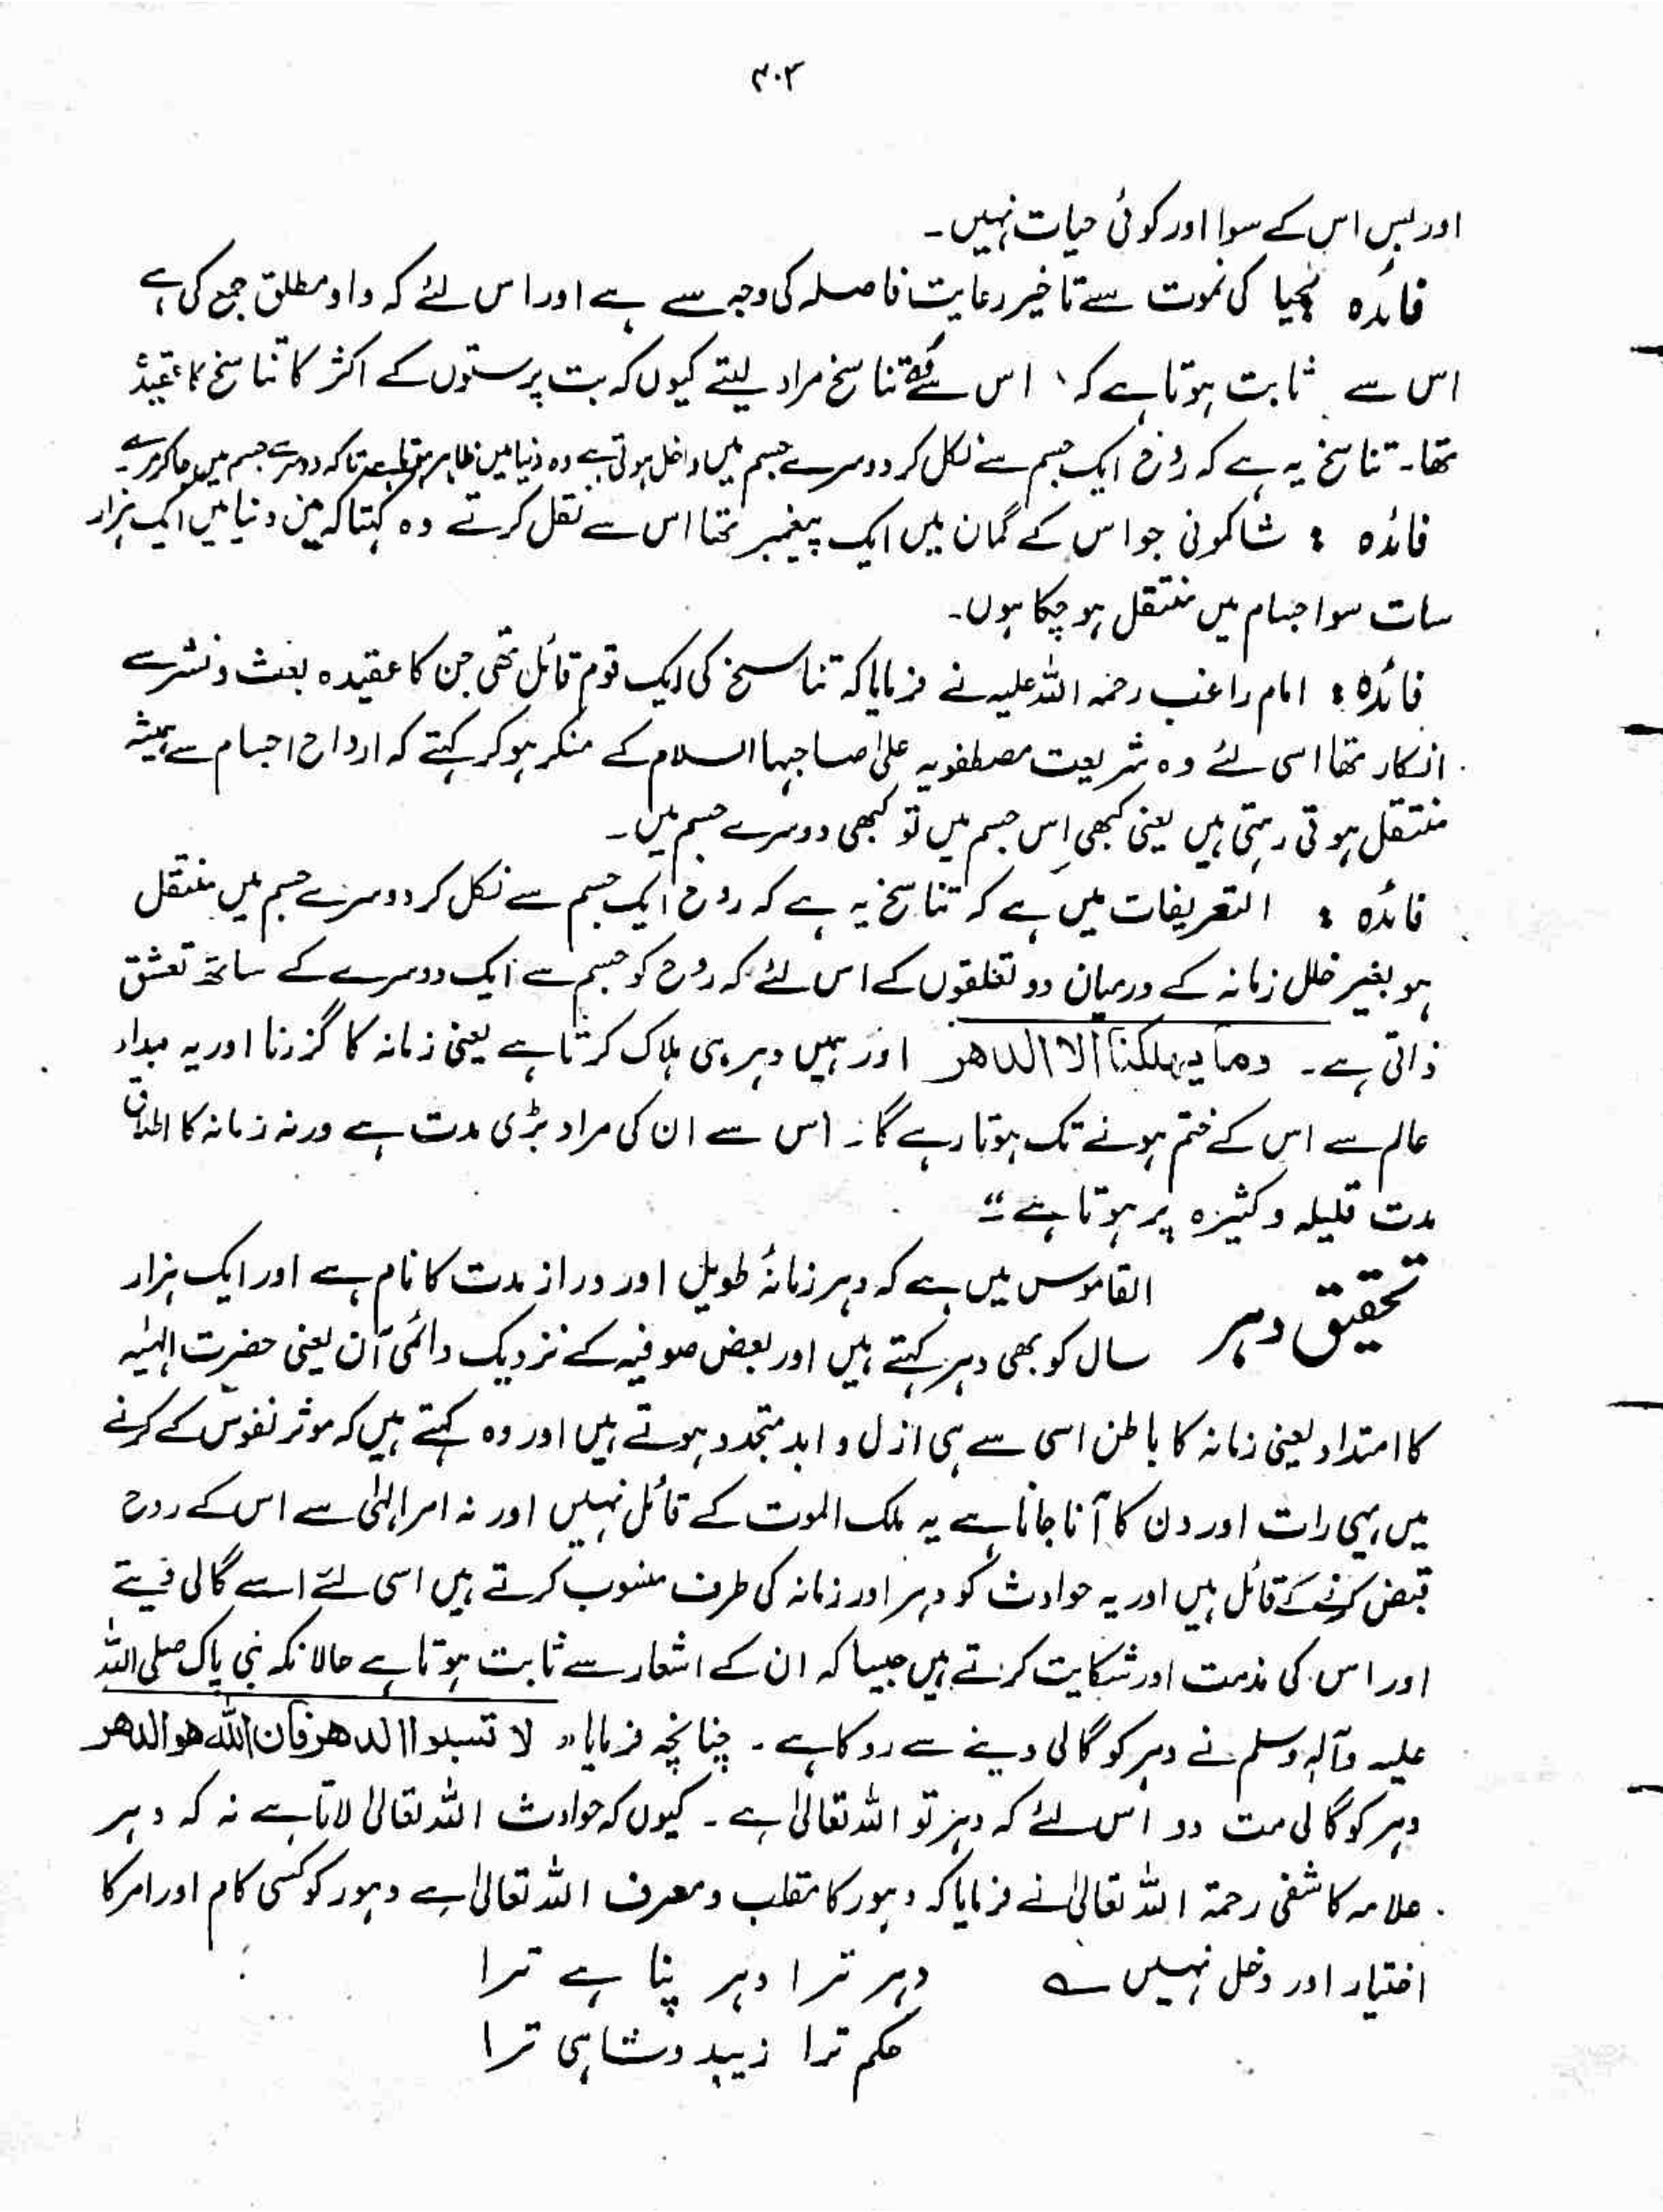 ۳۰۲
اور بس اس کے سوا اور کوئی حیات نہیں۔
فائدہ : نحیا کی نموت سے تاخیر رعایت فاصلہ کی وجہ سے ہے اور اس لئے کہ واو مطلق جمع کی ہے
اس سے ثابت ہوتا ہے کہ اس سے تناسخ مراد لیتے کیوں کہ بت پرستوں کے اکثر کا تناسخ کا عقیدہ
تھا۔ تناسخ یہ ہے کہ روح ایک جسم سے نکل کر دوسرے جسم میں داخل ہوتی ہے وہ دنیا میں ظاہر تاکہ دوسرے جسم میں جا کر مرے۔
فائدہ : شاکمونی جو اس کے گمان میں ایک پیغمبر تھا اس سے نقل کرتے وہ کہتا کہ میں دنیا میں ایک ہزار
سات سو اجسام میں منتقل ہو چکا ہوں۔
فائدہ : امام راغب رحمہ اللہ علیہ نے فرمایا کہ تناسخ کی ایک قوم قائل تھی جن کا عقیدہ بعث و نشر سے
انکار تھا اسی لئے وہ شریعت مصطفویہ علیٰ صاحبہا السلام کے منکر ہو کر کہتے کہ ارواح اجسام سے ہمیشہ
منتقل ہوتی رہتی ہیں یعنی کبھی اِس جسم میں تو کبھی دوسرے جسم میں۔
فائدہ : التعریفات میں ہے کہ تناسخ یہ ہے کہ روح ایک جسم سے نکل کر دوسرے جسم میں منتقل
ہو بغیر خلل زمانہ کے درمیان دو تعلقوں کے اس لئے کہ روح کو جسم سے ایک دوسرے کے ساتھ تعشق
ذاتی ہے۔ وما یهلکنا الا الدهر اور ہمیں دہر ہی ہلاک کرتا ہے یعنی زمانہ کا گزرنا اور یہ مبداء
عالم سے اس کے ختم ہونے تک ہوتا رہے گا۔ اس سے ان کی مراد بڑی مدت ہے ورنہ زمانہ کا اطلاق
مدت قلیلہ و کثیرہ پر ہوتا ہے ؎"
تحقیق دہر القاموس میں ہے کہ دہر زمانۂ طویل اور دراز مدت کا نام ہے اور ایک ہزار
سال کو بھی دہر کہتے ہیں اور بعض صوفیہ کے نزدیک دائمی آن یعنی حضرت الٰہیہ
کا امتداد یعنی زمانہ کا باطن اسی سے ہی ازل و ابد متجدد ہوتے ہیں اور وہ کہتے ہیں کہ موثر نفوس کے کرنے
میں یہی رات اور دن کا آنا جانا ہے یہ ملک الموت کے قائل نہیں اور نہ امر الٰہی سے اس کے روح
قبض کرنے کے قائل ہیں اور یہ حوادث کو دہر اور زمانہ کی طرف منسوب کرتے ہیں اسی لئے اسے گالی دیتے
اور اس کی مذمت اور شکایت کرتے ہیں جیسا کہ ان کے اشعار سے ثابت ہوتا ہے حالانکہ نبی پاک صلی اللہ
علیہ وآلہٖ وسلم نے دہر کو گالی دینے سے روکا ہے۔ چنانچہ فرمایا " لا تسبوا الدهر فان الله هو الدهر
دہر کو گالی مت دو اس لئے کہ دہر تو اللہ تعالیٰ ہے۔ کیوں کہ حوادث اللہ تعالیٰ لاتا ہے نہ کہ دہر
علامہ کاشفی رحمۃ اللہ تعالیٰ نے فرمایا کہ دہور کا مقلب و مصرف اللہ تعالیٰ ہے دہور کو کسی کام اور امر کا
اختیار اور دخل نہیں ؎ دہر ترا دہر پنا ہے ترا
حکم ترا زیبد و شاہی ترا